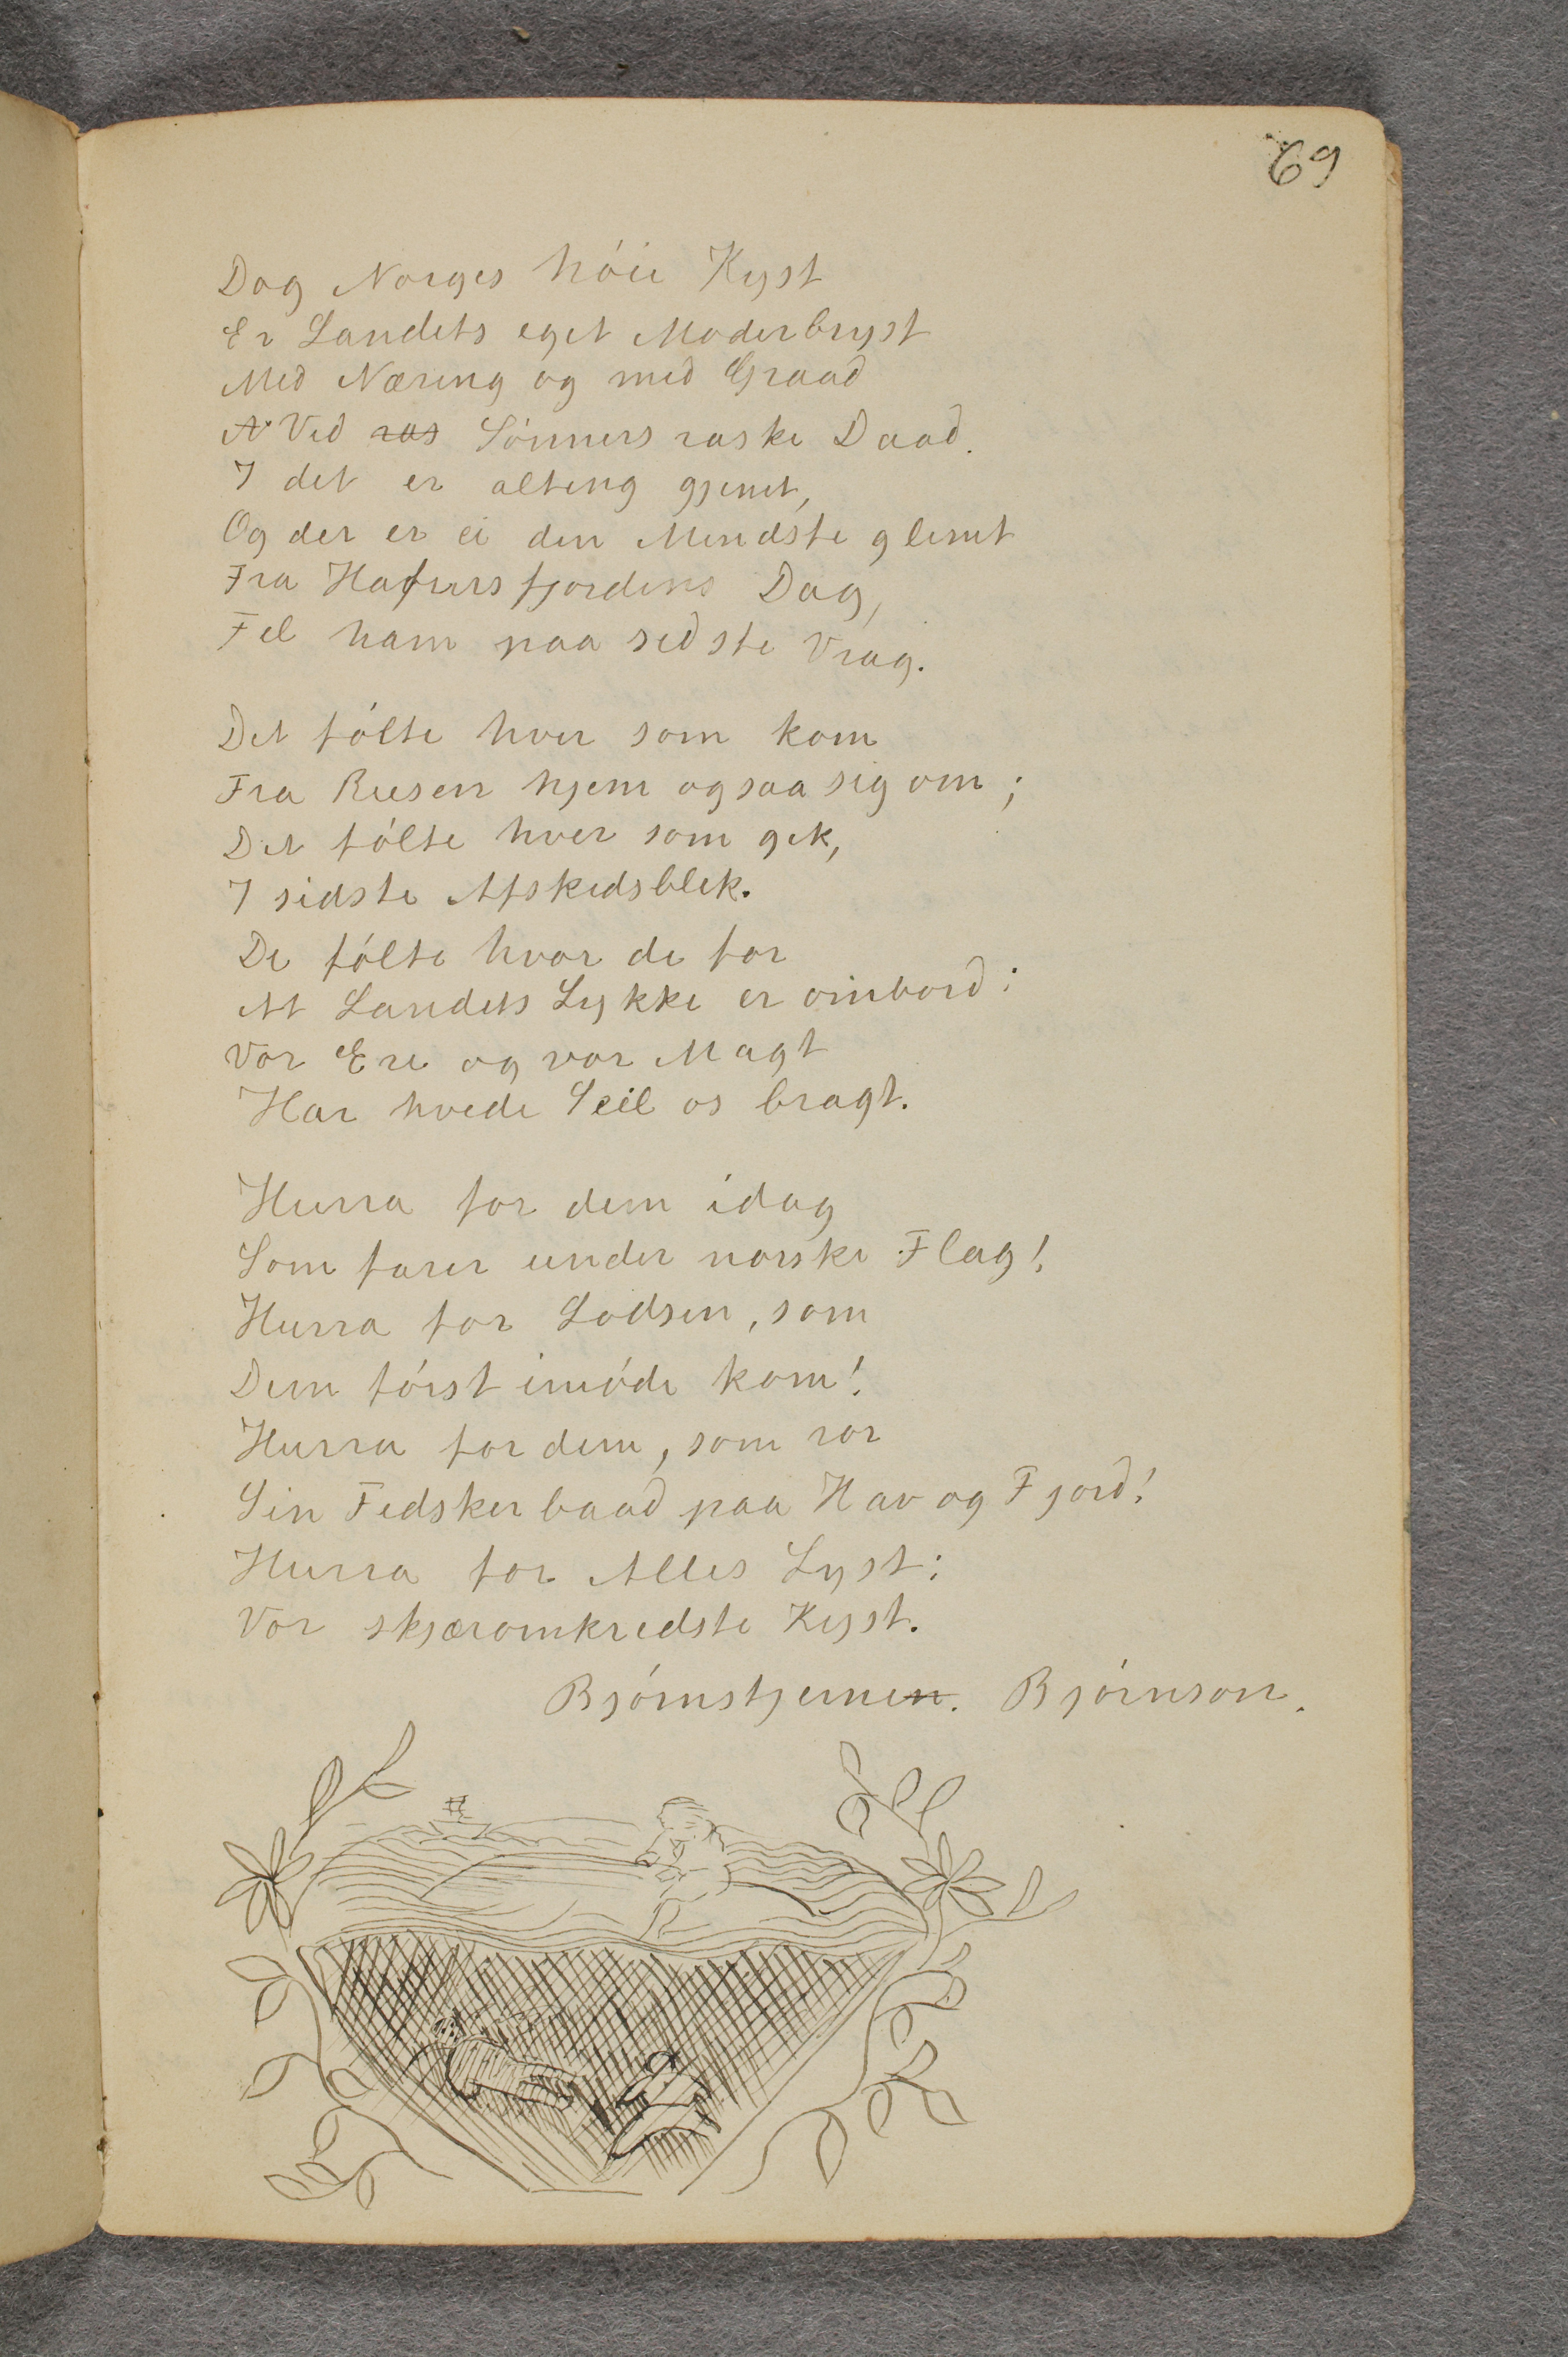 69
Dog Norges høie Kyst
Er Landets eget Moderbryst
Med Næring og med Graad
N Ved ras Sønners raske Daad.
I det er alting gjemt,
Og der er ei den Mindste glemt
Fra Hafursfjordens Dag,
Til ham paa sidste Vrag.
Det følte hver som kom
Fra Reisen hjem og saa sig om;
Det følte hver som gik,
I sidste Afskedsblik.
De følte hvor de for
At Landets Lykke er ombord:
Vor Ere og vor Magt
Har hvide Seil os bragt.
Hurra for dem idag
Som farer under norske Flag!
Hurra for Lodsen, som
Dem først imøde kom!
Hurra for dem, som ror
Sin Fidskerbaad paa Hav og Fjord!
Hurra for Alles Lyst:
Vor skjæromkredste Kyst.
Bjørnstjernen. Bjørnson.